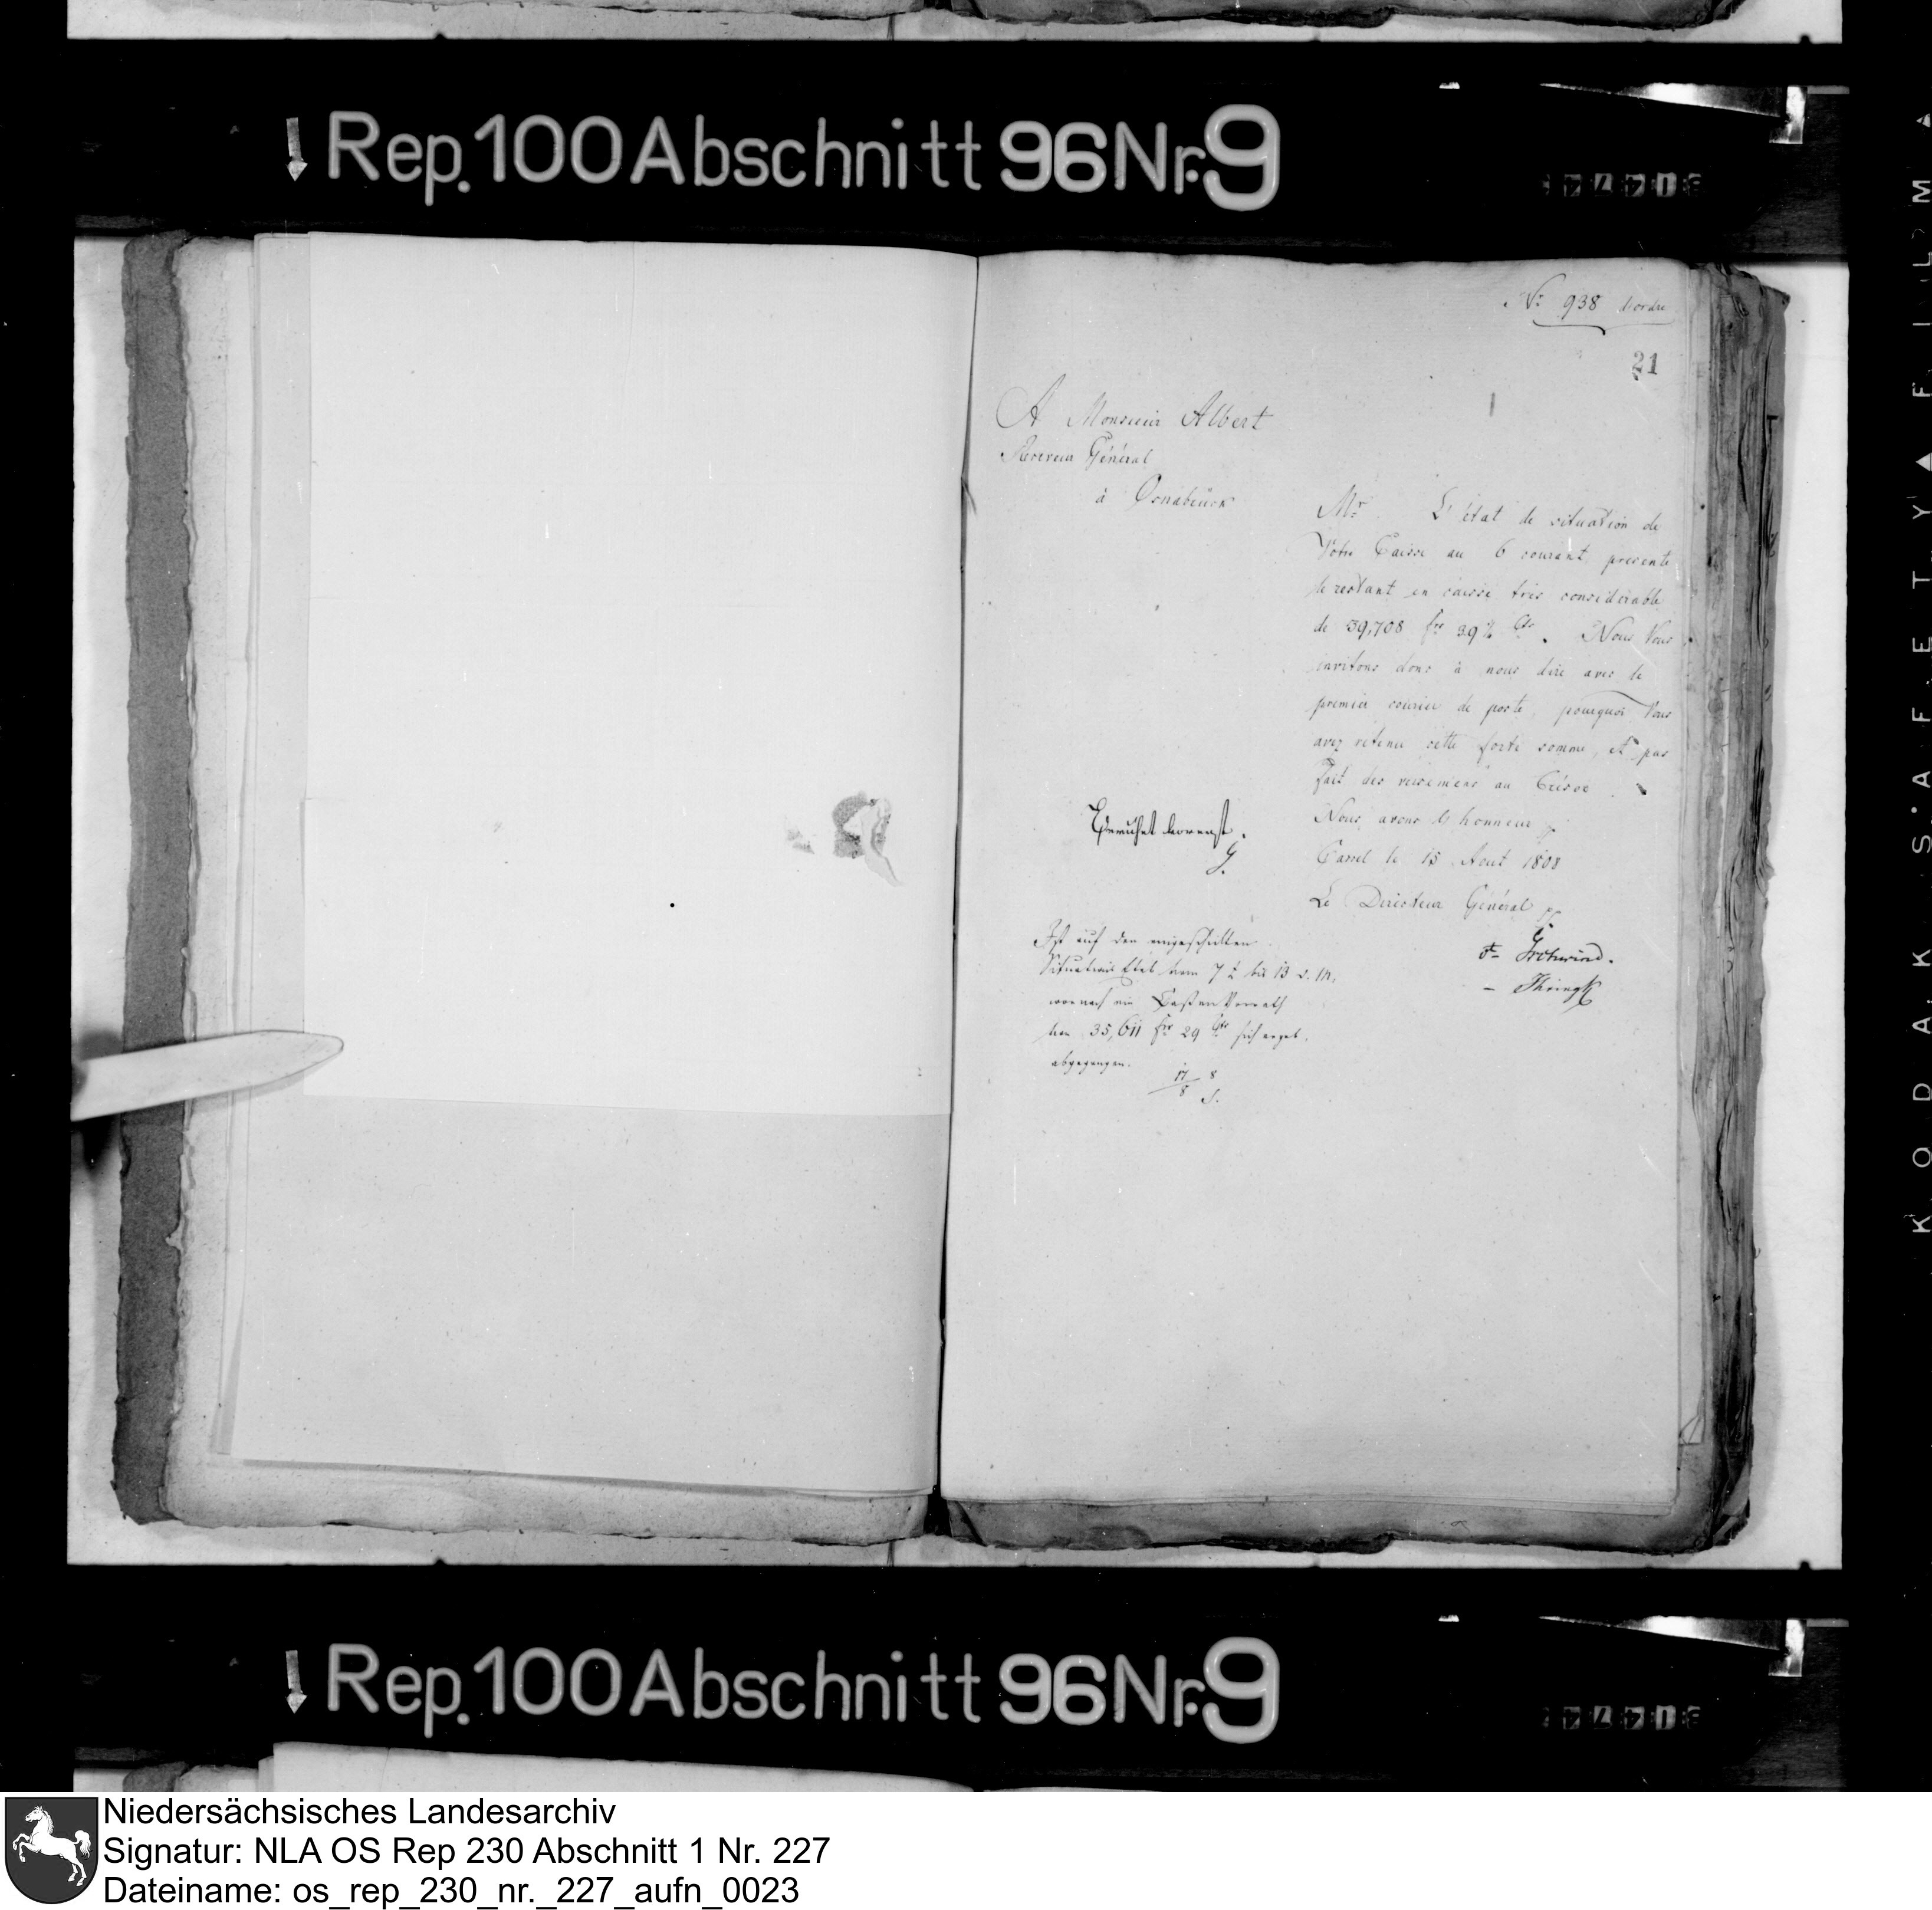 Rep.100 Abschnitt 96 Nr. 9
No 938 d'ordre
21
A Monsieur Albert
Receveur Général
à Osnabrück
Mr. L'état de situation de
Votre Caisse au 6 courant presente
le restant en caisse très considerable
de 39,708 frs 39½ Cts. Nous Vous
invitons donc à nous dire avec le
premier courier de poste, pourquoi Vous
avez retenu cette forte somme, et pas
fait des versemens au Trésor.
Nous avons l'honneur
Cassel le 15 Aout 1808
Le Directeur Général
Beruhet vorerst.
G.
Ist auf den eingeschickten
Situations Etat vom 7t bis 13 d. M.
wornach ein Cassen Vorrath
von 35,611 frs 29 Cts sich ergab,
abgegangen.
17/8 8
S.
Rep.100 Abschnitt 96 Nr. 9
KODAK SAFETY FILM
Niedersächsisches Landesarchiv
Signatur: NLA OS Rep 230 Abschnitt 1 Nr. 227
Dateiname: os_rep_230_nr._227_aufn_0023